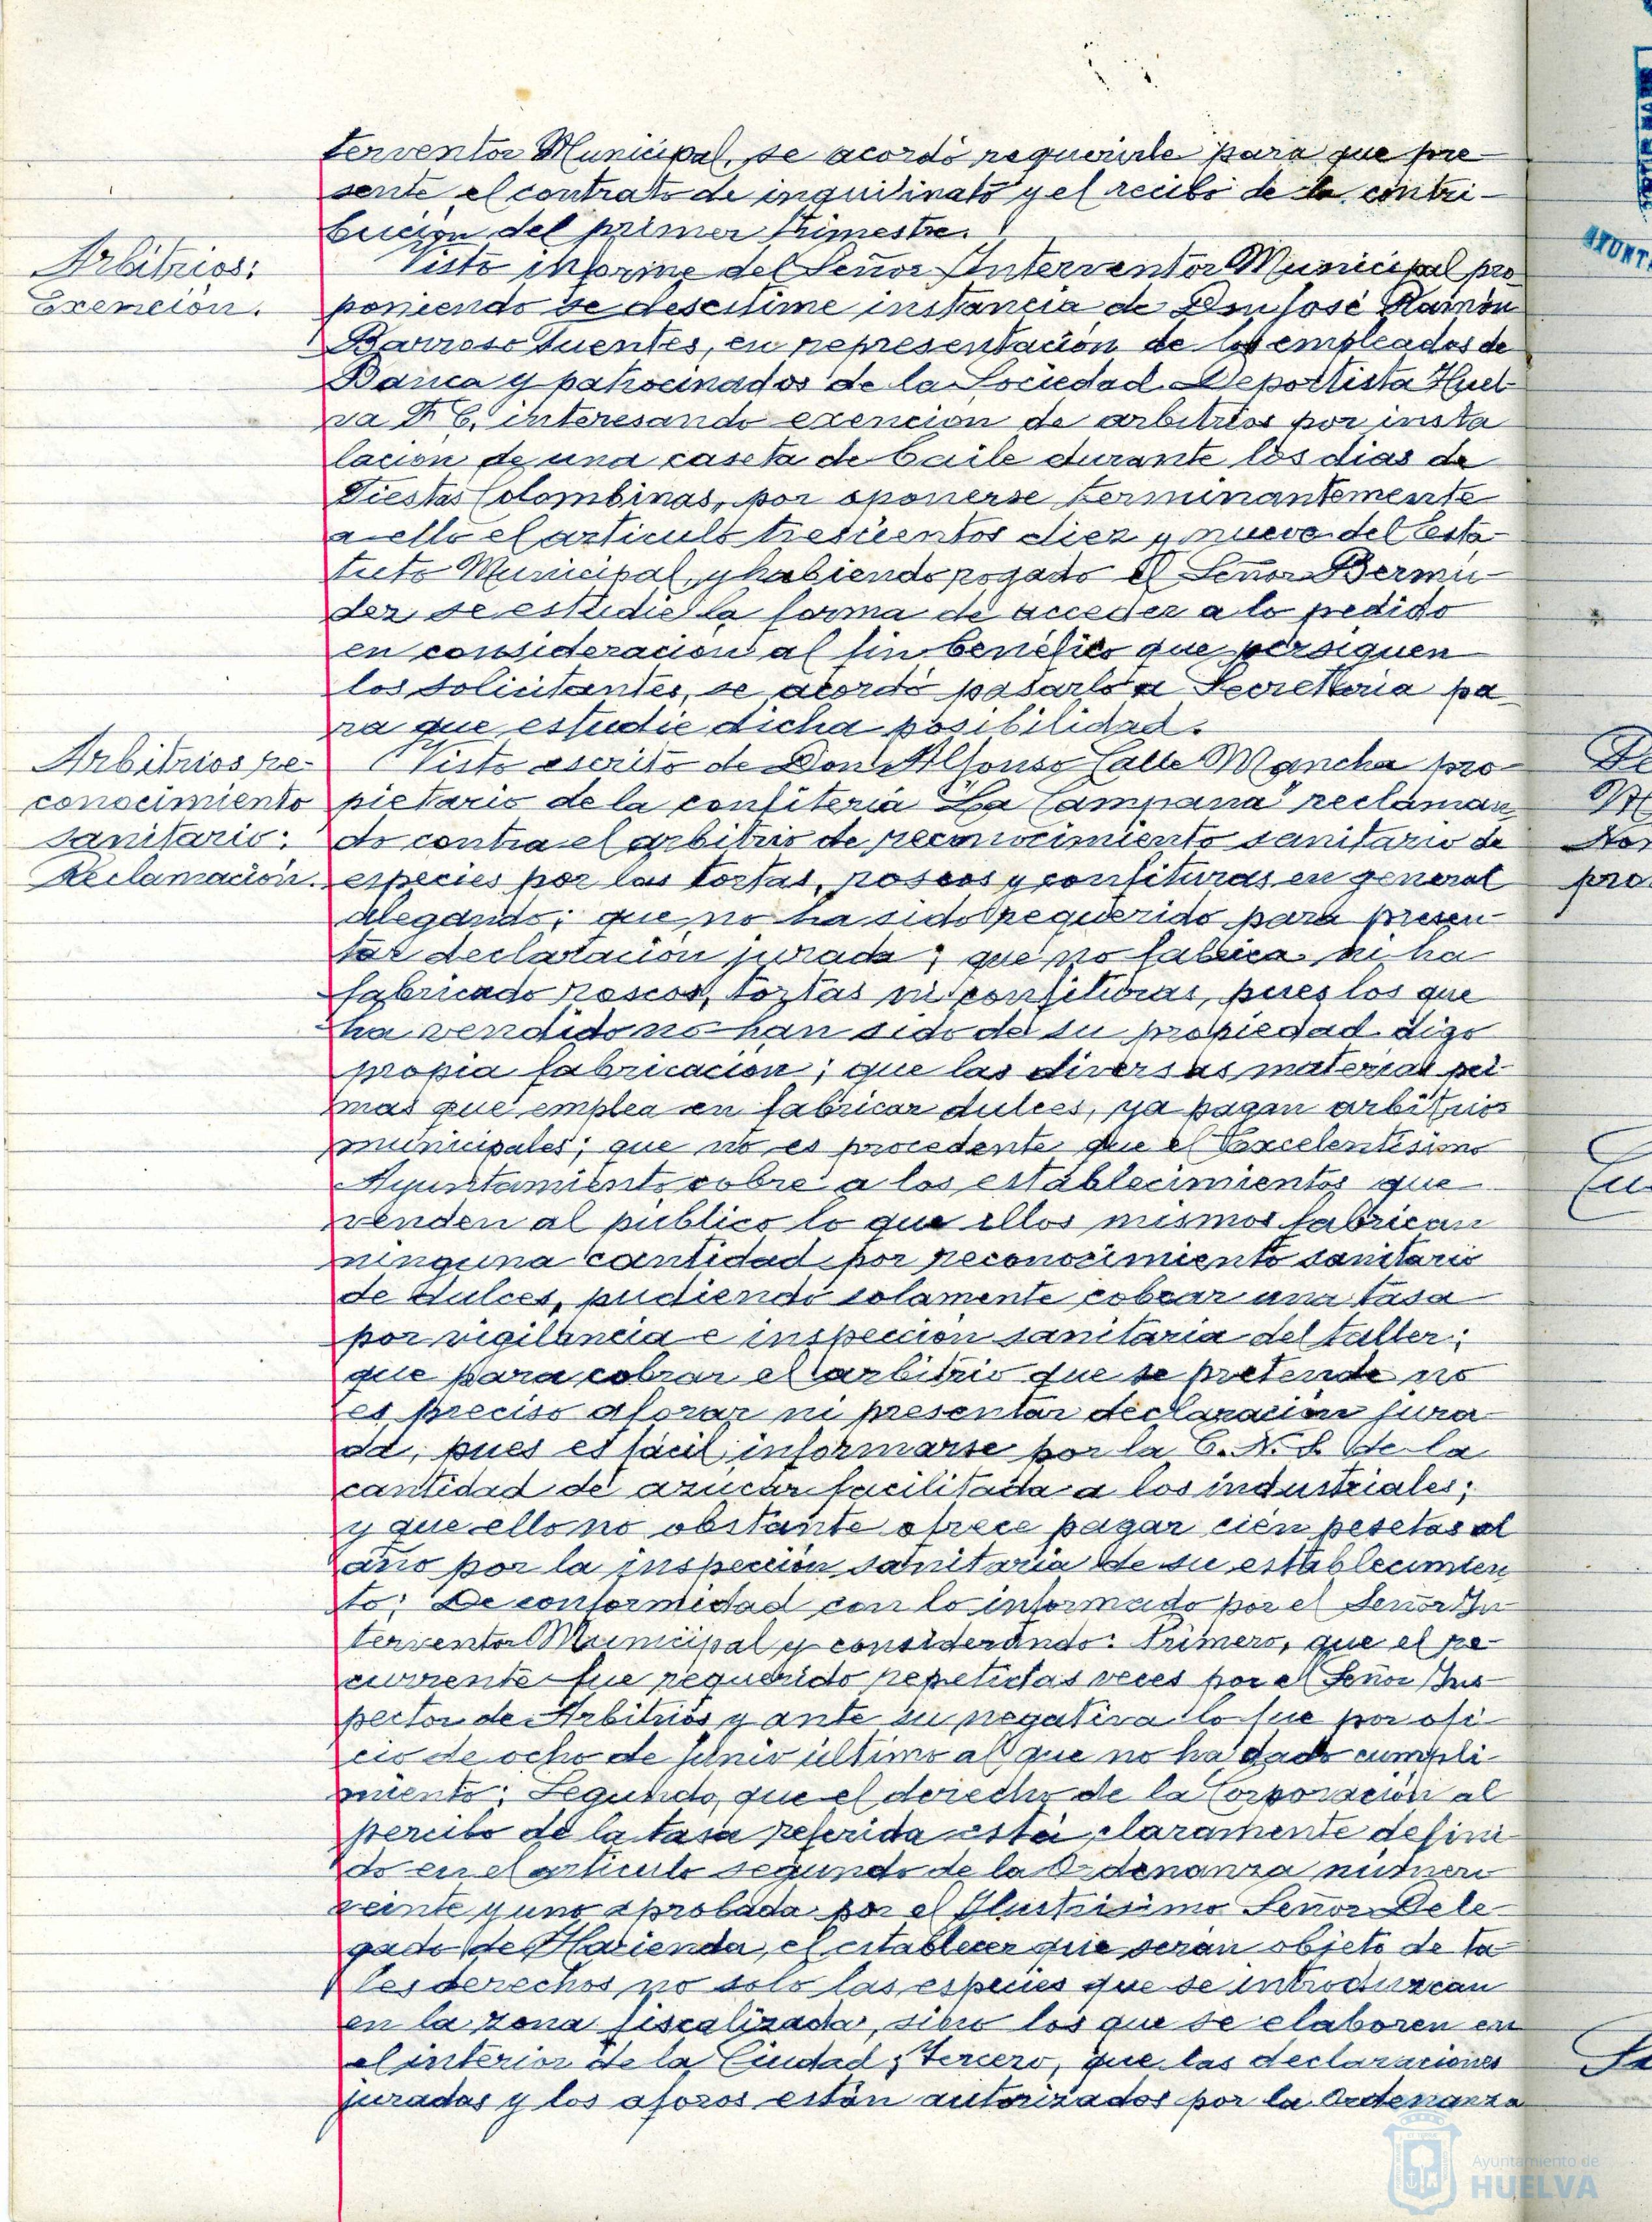 terventor Municipal, se acordó requerirle para que pre-
sente el contrato de inquilinato y el recibo de la contri-
bución del primer trimestre.
Arbitrios:
Exención.
Visto informe del Señor Interventor Municipal pro
poniendo se desestime instancia de Don José Ramón
Barroso Fuentes, en representación de los empleados de
Banca y patrocinados de la Sociedad Deportista Huel-
va F. C. interesando exención de arbitrios por insta
lación de una caseta de baile durante los dias de
Fiestas Colombinas, por oponerse terminantemente
a ello el articulo trescientos diez y nueve del Esta-
tuto Municipal, y habiendo rogado el Señor Bermú-
dez se estudie la forma de acceder a lo pedido
en consideración al fin benéfico que persiguen
los solicitantes, se acordó pasarlo a Secretaria pa-
ra que estudie dicha posibilidad.
Arbitrios re-
conocimiento
sanitario:
Reclamación.
Visto escrito de Don Alfonso Calle Mancha pro-
pietario de la confiteria "La Campana" reclaman
do contra el arbitrio de reconocimiento sanitario de
especies por las tortas, roscos y confituras en general
alegando; que no ha sido requerido para presen-
tar declaración jurada; que no fabrica ni ha
fabricado roscos, tortas ni confituras, pues los que
ha vendido no han sido de su propiedad digo
propia fabricación; que las diversas materias pri-
mas que emplea en fabricar dulces, ya pagan arbitrios
municipales; que no es procedente que el Excelentísimo
Ayuntamiento cobre a los establecimientos que
venden al publico lo que ellos mismos fabrican
ninguna cantidad por reconocimiento sanitario
de dulces, pudiendo solamente cobrar una tasa
por vigilancia e inspección sanitaria del taller;
que para cobrar el arbitrio que se pretende no
es preciso aforar ni presentar declaración jura-
da, pues es fácil informarse por la C. N. S. de la
cantidad de azucar facilitada a los industriales;
y que ello no obstante ofrece pagar cien pesetas al
año por la inspección sanitaria de su establecimien
to: De conformidad con lo informado por el Señor In-
terventor Municipal y considerando: Primero, que el re-
currente fue requerido repetidas veces por el Señor Ins-
pector de Arbitrios y ante su negativa lo fue por ofi-
cio de ocho de Junio último al que no ha dado cumpli-
miento; Segundo, que el derecho de la Corporación al
percibo de la tasa referida está claramente defini-
do en el articulo segundo de la Ordenanza número
veinte y uno aprobada por el Ilustrisimo Señor Dele-
gado de Hacienda, el establecer que serán objeto de ta-
les derechos no solo las especies que se introduzcan
en la zona fiscalizada, sino los que se elaboren en
el interior de la Ciudad; Tercero, que las declaraciones
juradas y los aforos están autorizados por la Ordenanza
Ayuntamiento de
HUELVA